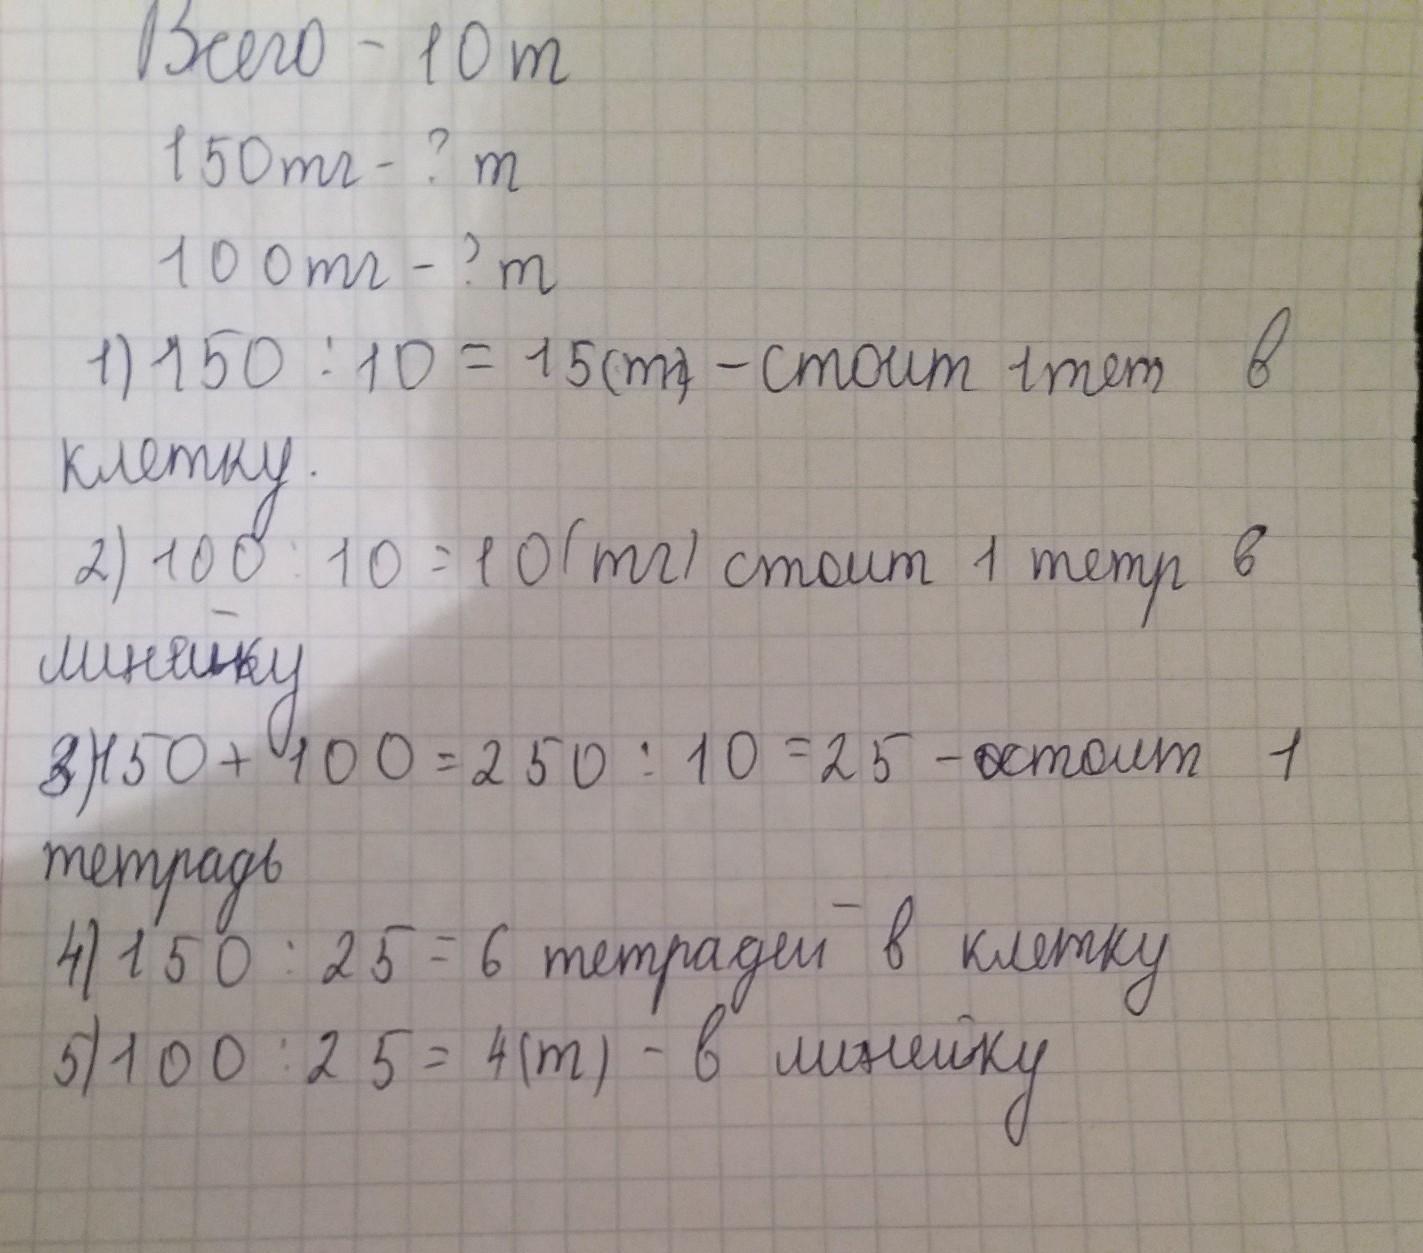 Всего - 10 т
150тг - ? т
100тг - ? т
1) 150 : 10 = 15(тг) - стоит 1 тет в
клетку.
2) 100 : 10 = 10(тг) стоит 1 тетр в
линейку
3) 150 + 100 = 250 : 10 = 25 - стоит 1
тетрадь
4) 150 : 25 = 6 тетрадей в клетку
5) 100 : 25 = 4(т) - в линейку